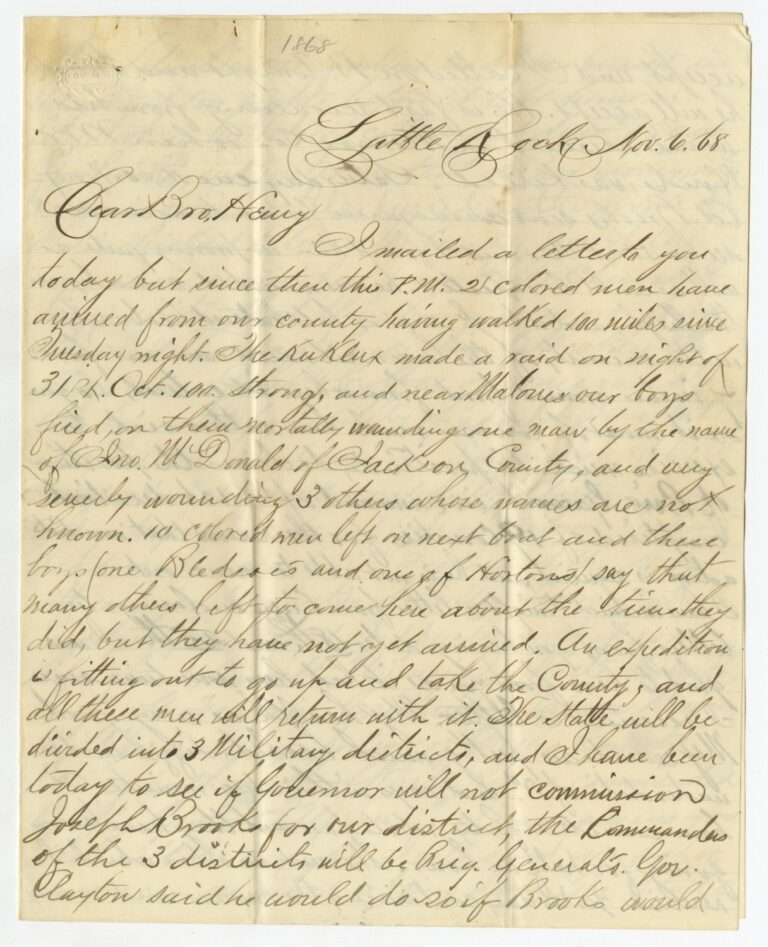 1868
CONGRESS
Little Rock, Nov. 6. 68
Dear Bro, Henry
I mailed a letter to you
today but since then this P.M. 2 colored men have
arrived from our county having walked 100 miles since
Tuesday night. The KuKlux made a raid on night of
31st. Oct. 100. strong, and near Malones our boys
fired on them mortally wounding one man by the name
of Jno. McDonald of Jackson County, and very
severly wounding 3 others whose names are not
known. 10 colored men left on next boat and these
boys (one Bledsoes and one of Hortons) say that
many others left to come here about the time they
did, but they have not yet arrived. An expedition
is fitting out to go up and take the County, and
all these men will return with it. The State will be
divided into 3 Military districts, and I have been
today to see if Governor will not commission
Joseph Brooks for our district, the Commanders
of the 3 districts will be Brig. Generals. Gov.
Clayton said he would do so if Brooks would